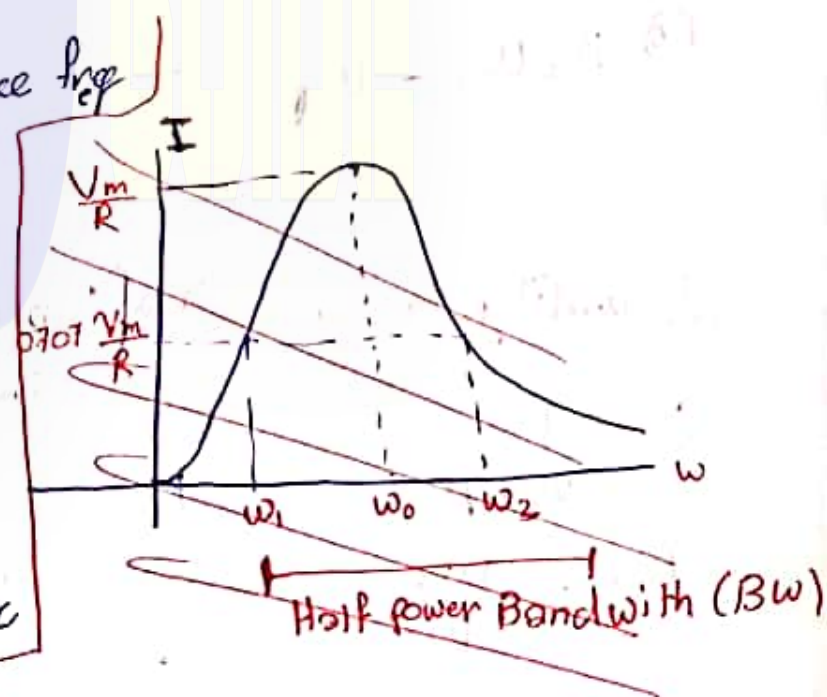 ce freq
I
Vm/R
0707 Vm/R
ω
ω1 ω0 ω2
Half power Bandwith (BW)
c